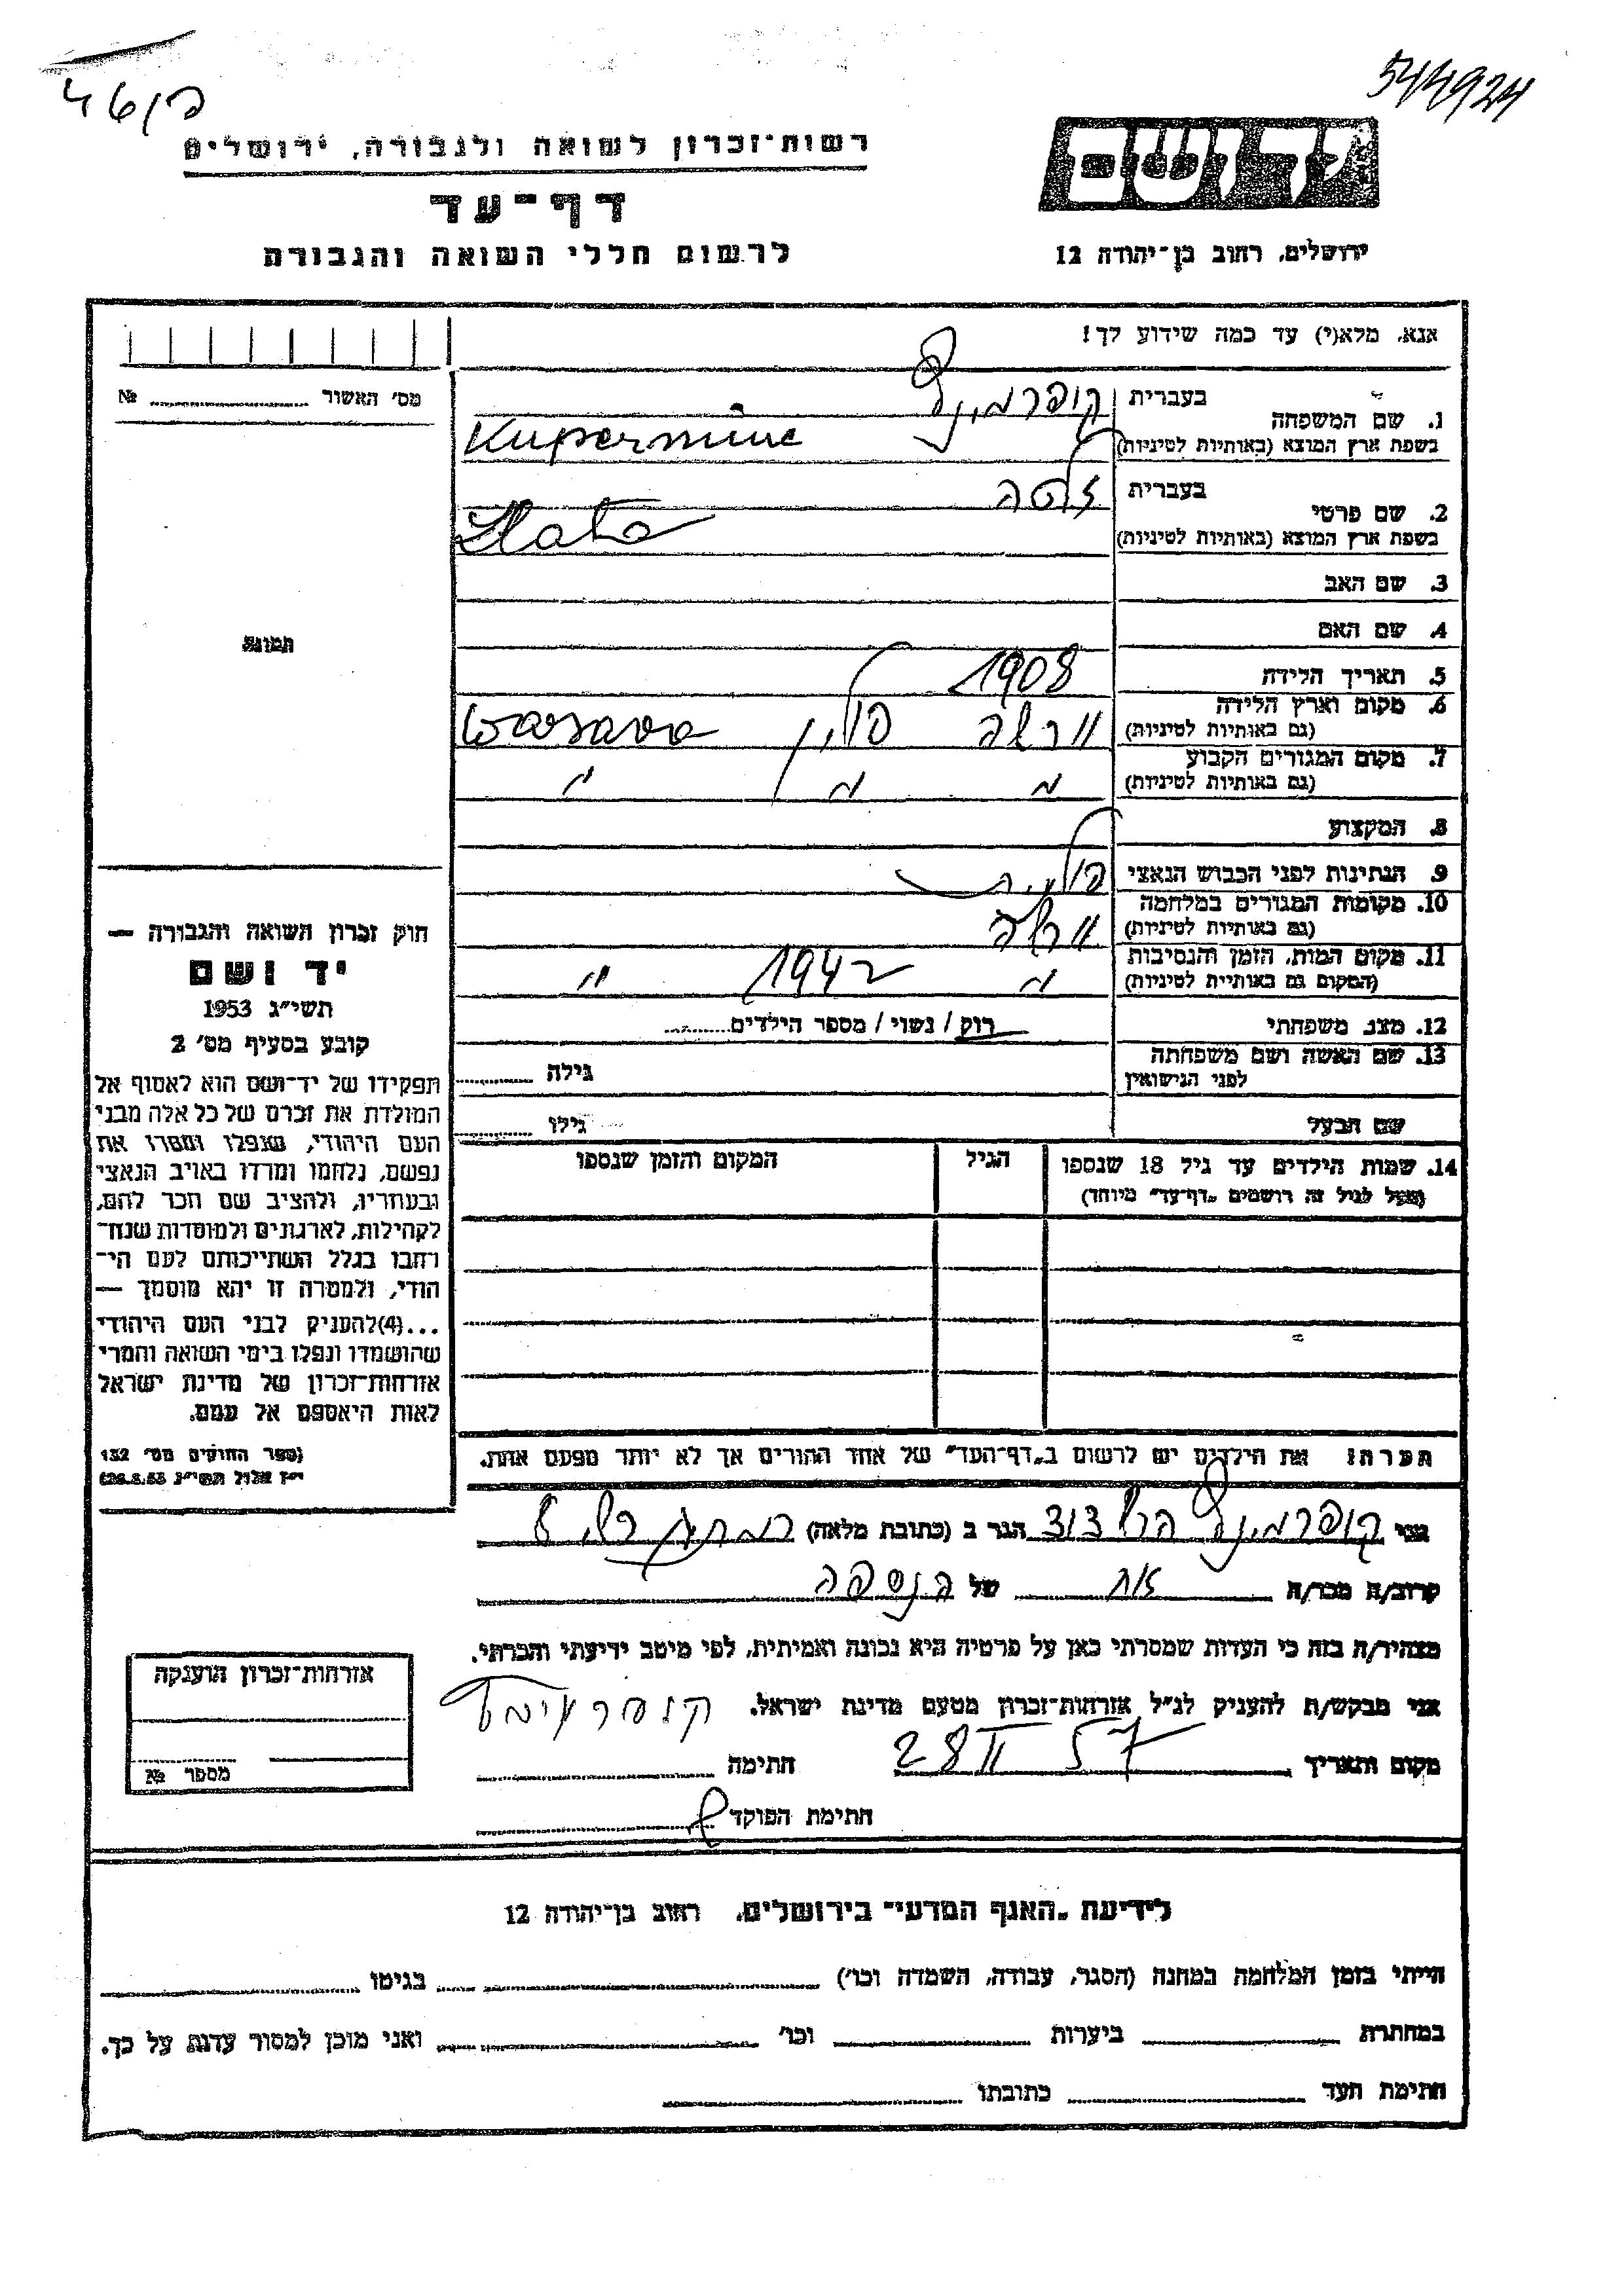 544924
רשות־זכרון לשואה ולגבורה, ירושלים
דף־עד
לרשום חללי השואה והגבורה
ירושלים, רחוב בן־יהודה 12
אנא, מלא(י) עד כמה שידוע לך!
מס׳ האשור № ........
1. שם המשפחה
בעברית
בשפת ארץ המוצא (באותיות לטיניות)
Kupermine
2. שם פרטי
בעברית זלטה
בשפת ארץ המוצא (באותיות לטיניות) Zlata
3. שם האב
4. שם האם
5. תאריך הלידה 1908
6. מקום וארץ הלידה
(גם באותיות לטיניות) וורשה פולין
7. מקום המגורים הקבוע
(גם באותיות לטיניות) " " "
8. המקצוע
9. הנתינות לפני הכבוש הנאצי פולנית
10. מקומות המגורים במלחמה
(גם באותיות לטיניות) וורשה
11. מקום המות, הזמן והנסיבות
(המקום גם באותיות לטיניות) " 1942 "
12. מצב משפחתי רוק / נשוי / מספר הילדים........
13. שם האשה ושם משפחתה
לפני הנישואין גילה ........
שם הבעל גילו ........
14. שמות הילדים עד גיל 18 שנספו
(מעל לגיל זה רושמים „דף־עד" מיוחד)
הגיל
המקום והזמן שנספו
הערה: את הילדים יש לרשום ב„דף־העד" של אחד ההורים אך לא יותר מפעם אחת.
תמונה
חוק זכרון השואה והגבורה —
יד ושם
תשי״ג 1953
קובע בסעיף מס׳ 2
תפקידו של יד־ושם הוא לאסוף אל
המולדת את זכרם של כל אלה מבני
העם היהודי, שנפלו ומסרו את
נפשם, נלחמו ומרדו באויב הנאצי
ובעוזריו, ולהציב שם וזכר להם,
לקהילות, לארגונים ולמוסדות שנח־
רבו בגלל השתייכותם לעם הי־
הודי, ולמטרה זו יהא מוסמך —
...(4)להעניק לבני העם היהודי
שהושמדו ונפלו בימי השואה והמרי
אזרחות־זכרון של מדינת ישראל
לאות היאספם אל עמם.
(ספר החוקים מס׳ 132
י״ז אלול תשי״ג 28.8.53)
אני קופרמינץ הרש דוד הגר ב (כתובת מלאה)
קרוב/ה מכר/ה אח של הנספה
מצהיר/ה בזה כי העדות שמסרתי כאן על פרטיה היא נכונה ואמיתית, לפי מיטב ידיעתי והכרתי.
אני מבקש/ת להעניק לנ״ל אזרחות־זכרון מטעם מדינת ישראל.
מקום ותאריך 28 II 57 חתימה ........
חתימת הפוקד ........
אזרחות־זכרון הוענקה
מספר №
לידיעת „האגף המדעי" בירושלים, רחוב בן־יהודה 12
הייתי בזמן המלחמה במחנה (הסגר, עבודה, השמדה וכו׳) ........ בגיטו ........
במחתרת ........ ביערות ........ וכו׳ ........ ואני מוכן למסור עדות על כך.
חתימת העד ........ כתובתו ........